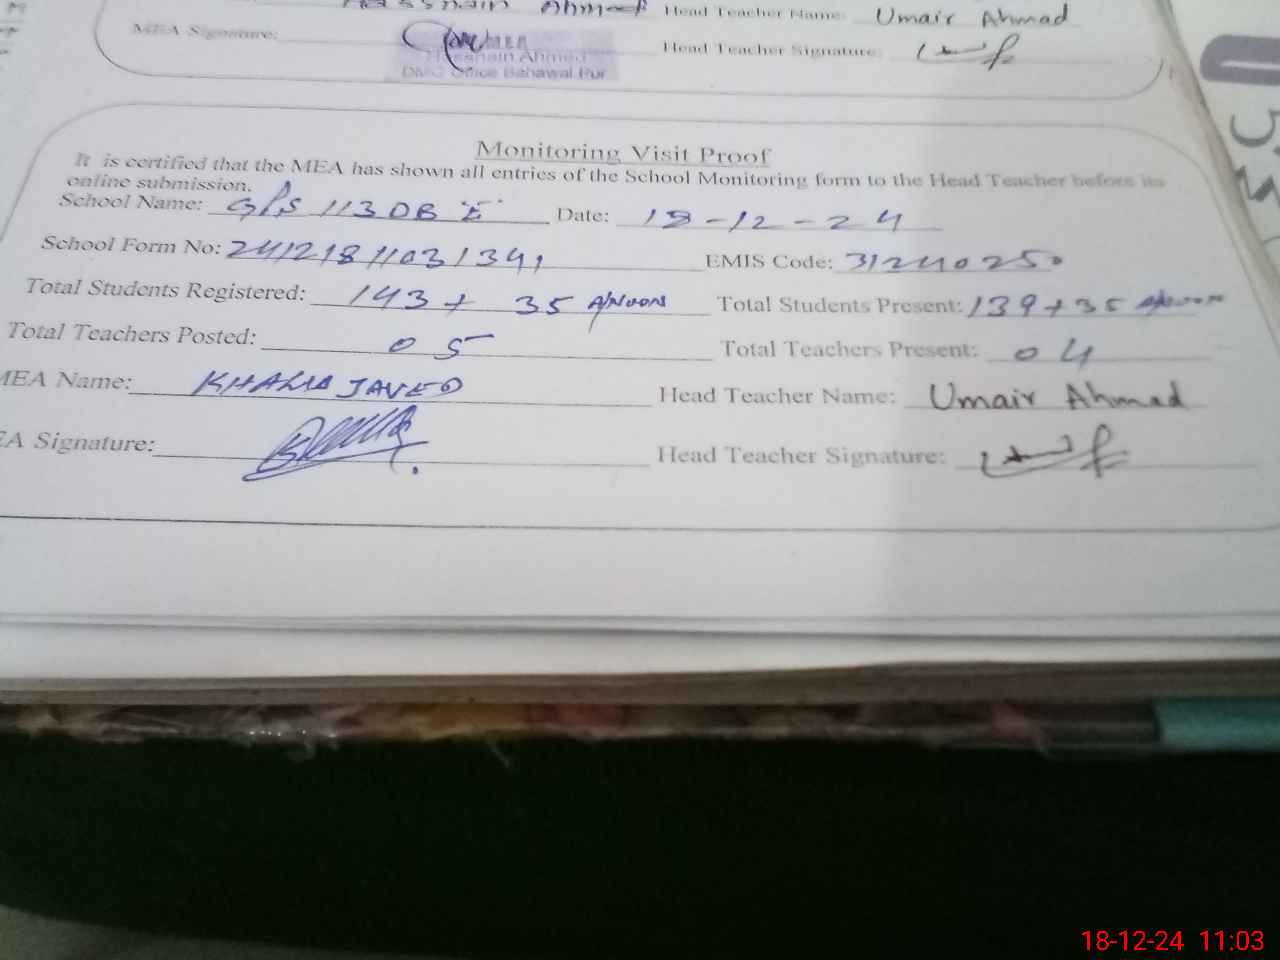 Hassnain Ahmed Head Teacher Name: Umair Ahmad
MEA Signature: Head Teacher Signature:
Hassnain Ahmed
DMO Office Bahawal Pur
Monitoring Visit Proof
It is certified that the MEA has shown all entries of the School Monitoring form to the Head Teacher before its
online submission.
School Name: GPS 113 DB E Date: 18-12-24
School Form No: 24121811031341 EMIS Code: 31240250
Total Students Registered: 143 + 35 A/Noon Total Students Present: 139+35 A/Noon
Total Teachers Posted: 05 Total Teachers Present: 04
MEA Name: KHALID JAVED Head Teacher Name: Umair Ahmad
EA Signature: Head Teacher Signature:
18-12-24 11:03